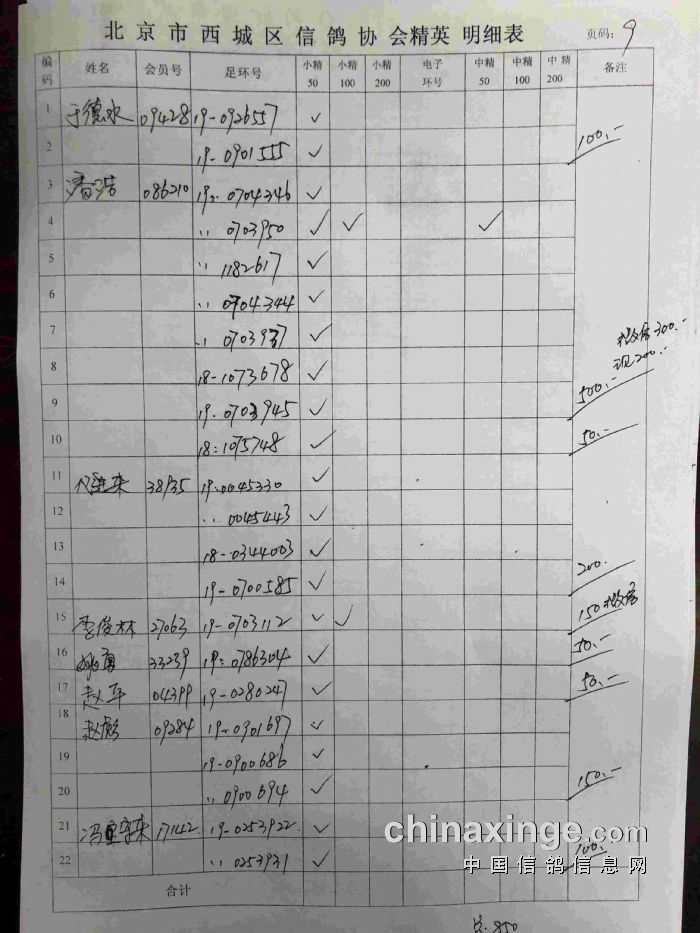 北京市西城区信鸽协会精英 明细表
页码: 9
编码 姓名 会员号 足环号 小精50 小精100 小精200 电子环号 中精50 中精100 中精200 备注
1 于德水 09428 19-0926557 ✓
2 19-0901555 ✓ 100.-
3 潘浩 086210 19:0704346 ✓
4 〃 0703950 ✓ ✓ ✓
5 〃 1182617 ✓
6 〃 0704344 ✓
7 〃 0703937 ✓ 300.-
现200.-
8 18-1073678 ✓
9 19-0703945 ✓ 500.-
10 18:1075748 ✓ 50.-
11 38935 19-0045330 ✓
12 〃 0045443 ✓
13 18-0344003 ✓
14 19-0700585 ✓ 200.
15 李俊林 27063 19-0703112 ✓ ✓ 150
16 33239 19:0786304 ✓ 50.-
17 赵军 04399 19-0280247 ✓ 50.-
18 赵彪 09284 19-0901697 ✓
19 19-0900686 ✓
20 〃 0900694 ✓ 150.-
21 17142 19-0253922 ✓
22 〃 0253931 ✓ 100.-
合计
chinaxinge.com
中国信鸽信息网